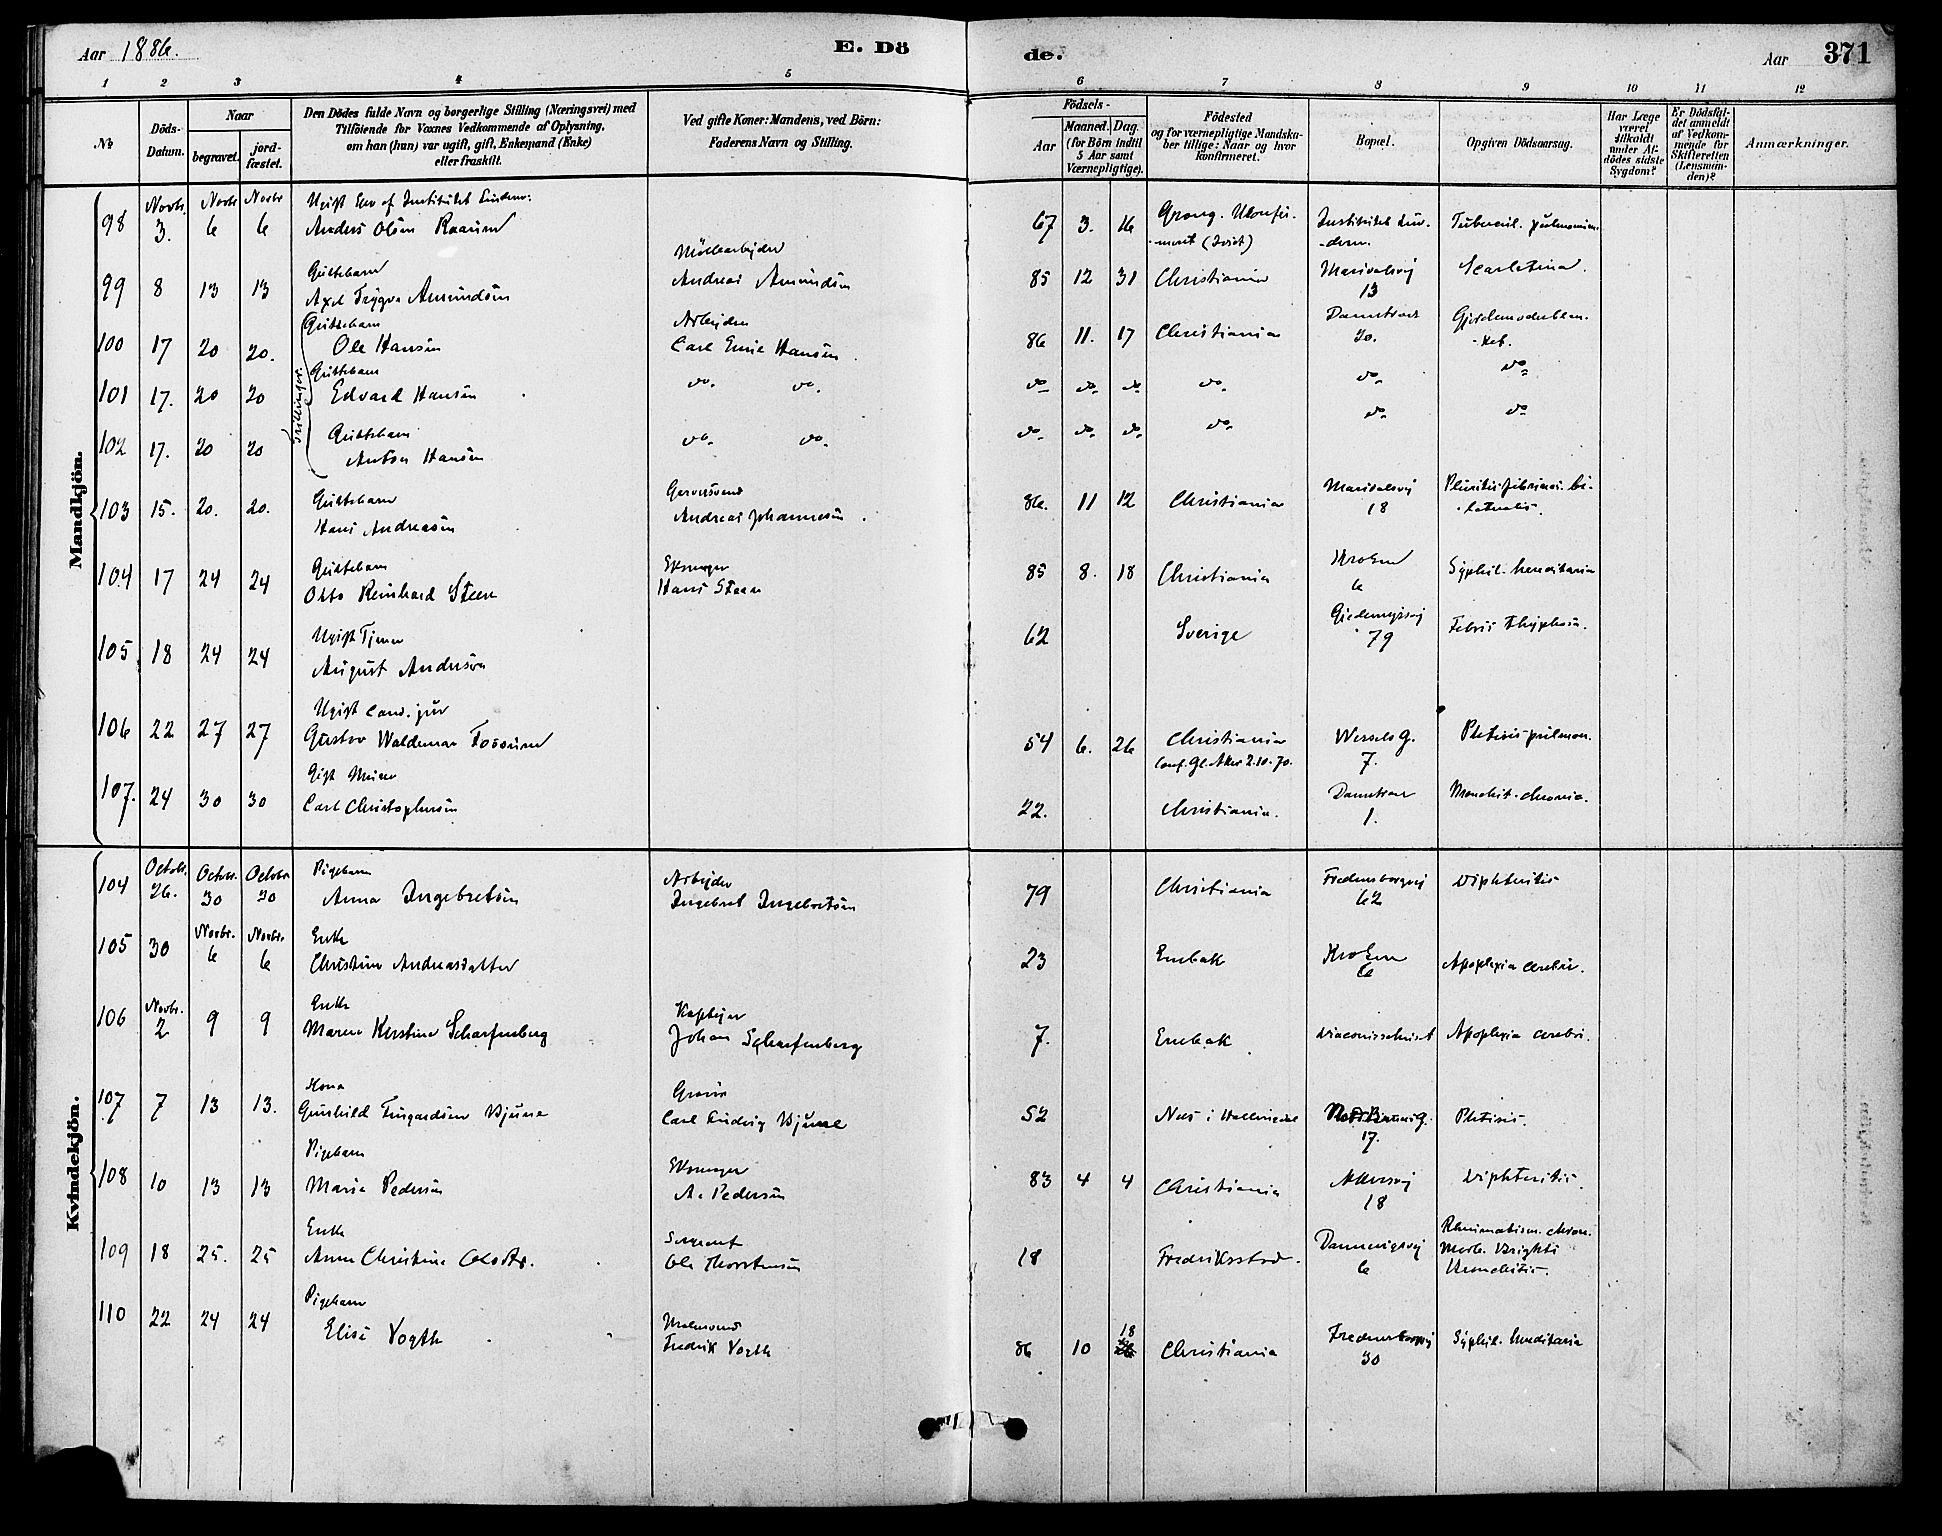 Aar 1886.
E. Dö
de.
Aar
371
1 2 3 4 5 6 7 8 9 10 11 12
No
Döds-Datum.
Naar
begravet.
jordfæstet.
Den Dödes fulde Navn og borgerlige Stilling (Næringsvei) med
Tilföiende for Voxnes Vedkommende af Oplysning,
om han (hun) var ugift, gift, Enkemand (Enke)
eller fraskilt.
Ved gifte Koner: Mandens, ved Börn:
Faderens Navn og Stilling.
Födsels-
Aar
Maaned. Dag.
(for Börn indtil
5 Aar samt
Værnepligtige).
Födested
og for værnepligtige Mandskaber tillige: Naar og hvor
konfirmeret.
Bopæl.
Opgiven Dödsaarsag.
Har Læge
været
tilkaldt
under Afdödes sidste
Sygdom?
Er Dödsfaldet anmeldt
af Vedkommende for
Skifteretten
(Lensmanden)?
Anmærkninger.
Mandkjön.
98 Novbr. 3. Novbr 6 Novbr 6
Anders Olsen 67 3. 16 Grong. Tubercul. pulmonum
99 8 13 13 Guttebarn Axel Trygve Amundsen Möllearbejder Andreas Amundsen 85 12 31 Christiania Maridalsvej 13 Scarlatina.
Trillinger.
100 17 20 20. Guttebarn Ole Hansen Arbejder Carl Emil Hansen. 86 11. 17 Christiania 30.
101 17. 20 20 Guttebarn Edvard Hansen do. do. do do do do. do. do
102 17. 20 20 Guttebarn Anton Hansen do. do. do. do. do. do. do. do
103 15. 20. 20. Guttebarn Hans Andreasen Garversvend Andreas Johannesen. 86. 11 12 Christiania Maridalsvej 18
104 17 24 24 Guttebarn Otto Reinhard Steen Skomager Hans Steen 85 8. 18 Christiania 6 Syphil. hereditaria
105 18 24 24 Ugift Tjener August Anderson 62 Sverige 79 Febris thyphoid.
106 22 27 27 Ugift Cand. jur Gustav Waldemar Fossum 54 6. 26 Christiania Conf. Gl. Aker 2.10.70. Wessels G. 7. Phtisis pulmon.
107. 24 30 30 Gift Carl Christophersen 22. Christiania. 1.
Kvindekjön.
104 Octobr. 26. Octobr. 30 Octobr 30 Pigebarn Anna Ingebretsen Arbejder Ingebret Ingebretsen 79 Christiania Fredensborgvej 62 Diphteritis
105 30 Novbr. 6 Novbr. 6 Enke Christine Andreasdatter 23 Enebak 6 Apoplexia cerebri.
106 Novbr. 2 9 9 Enke Maren Kerstine Scharfenberg Kaptejn Johan Scharfenberg 7. Enebak Apoplexia cerebri.
107 7 13 13. Kona Gunhild Carl Ludvig 52 Næs i Hallingdal 17. Phtisis.
108 10 13 13 Pigebarn Marie Pedersen Skomager A. Pedersen 83 4 4 Christiania Akersvej 18 Diphteritis.
109 18 25. 25 Enke Anne Christine Olsdtr. Sergeant Ole Thorstensen 18 Fredriksstad. 6 Rheumatism. chron. Morb. Brightii Bronchitis.
110 22 24 24 Pigebarn Elise Vogth Malersvend Fredrik Vogth 86 10 18 Christiania Fredensborgvej 30 Syphil. hereditaria